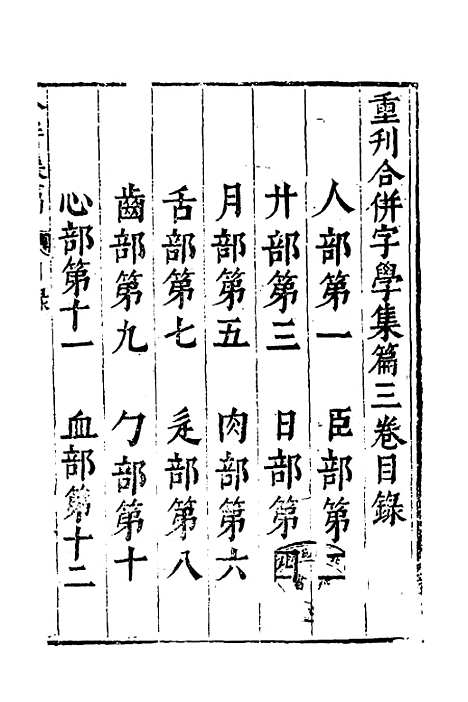 重刊合併字學集篇三卷目錄
人部第一 臣部第二
廾部第三 日部第四
月部第五 肉部第六
舌部第七 辵部第八
齒部第九 勹部第十
心部第十一 血部第十二